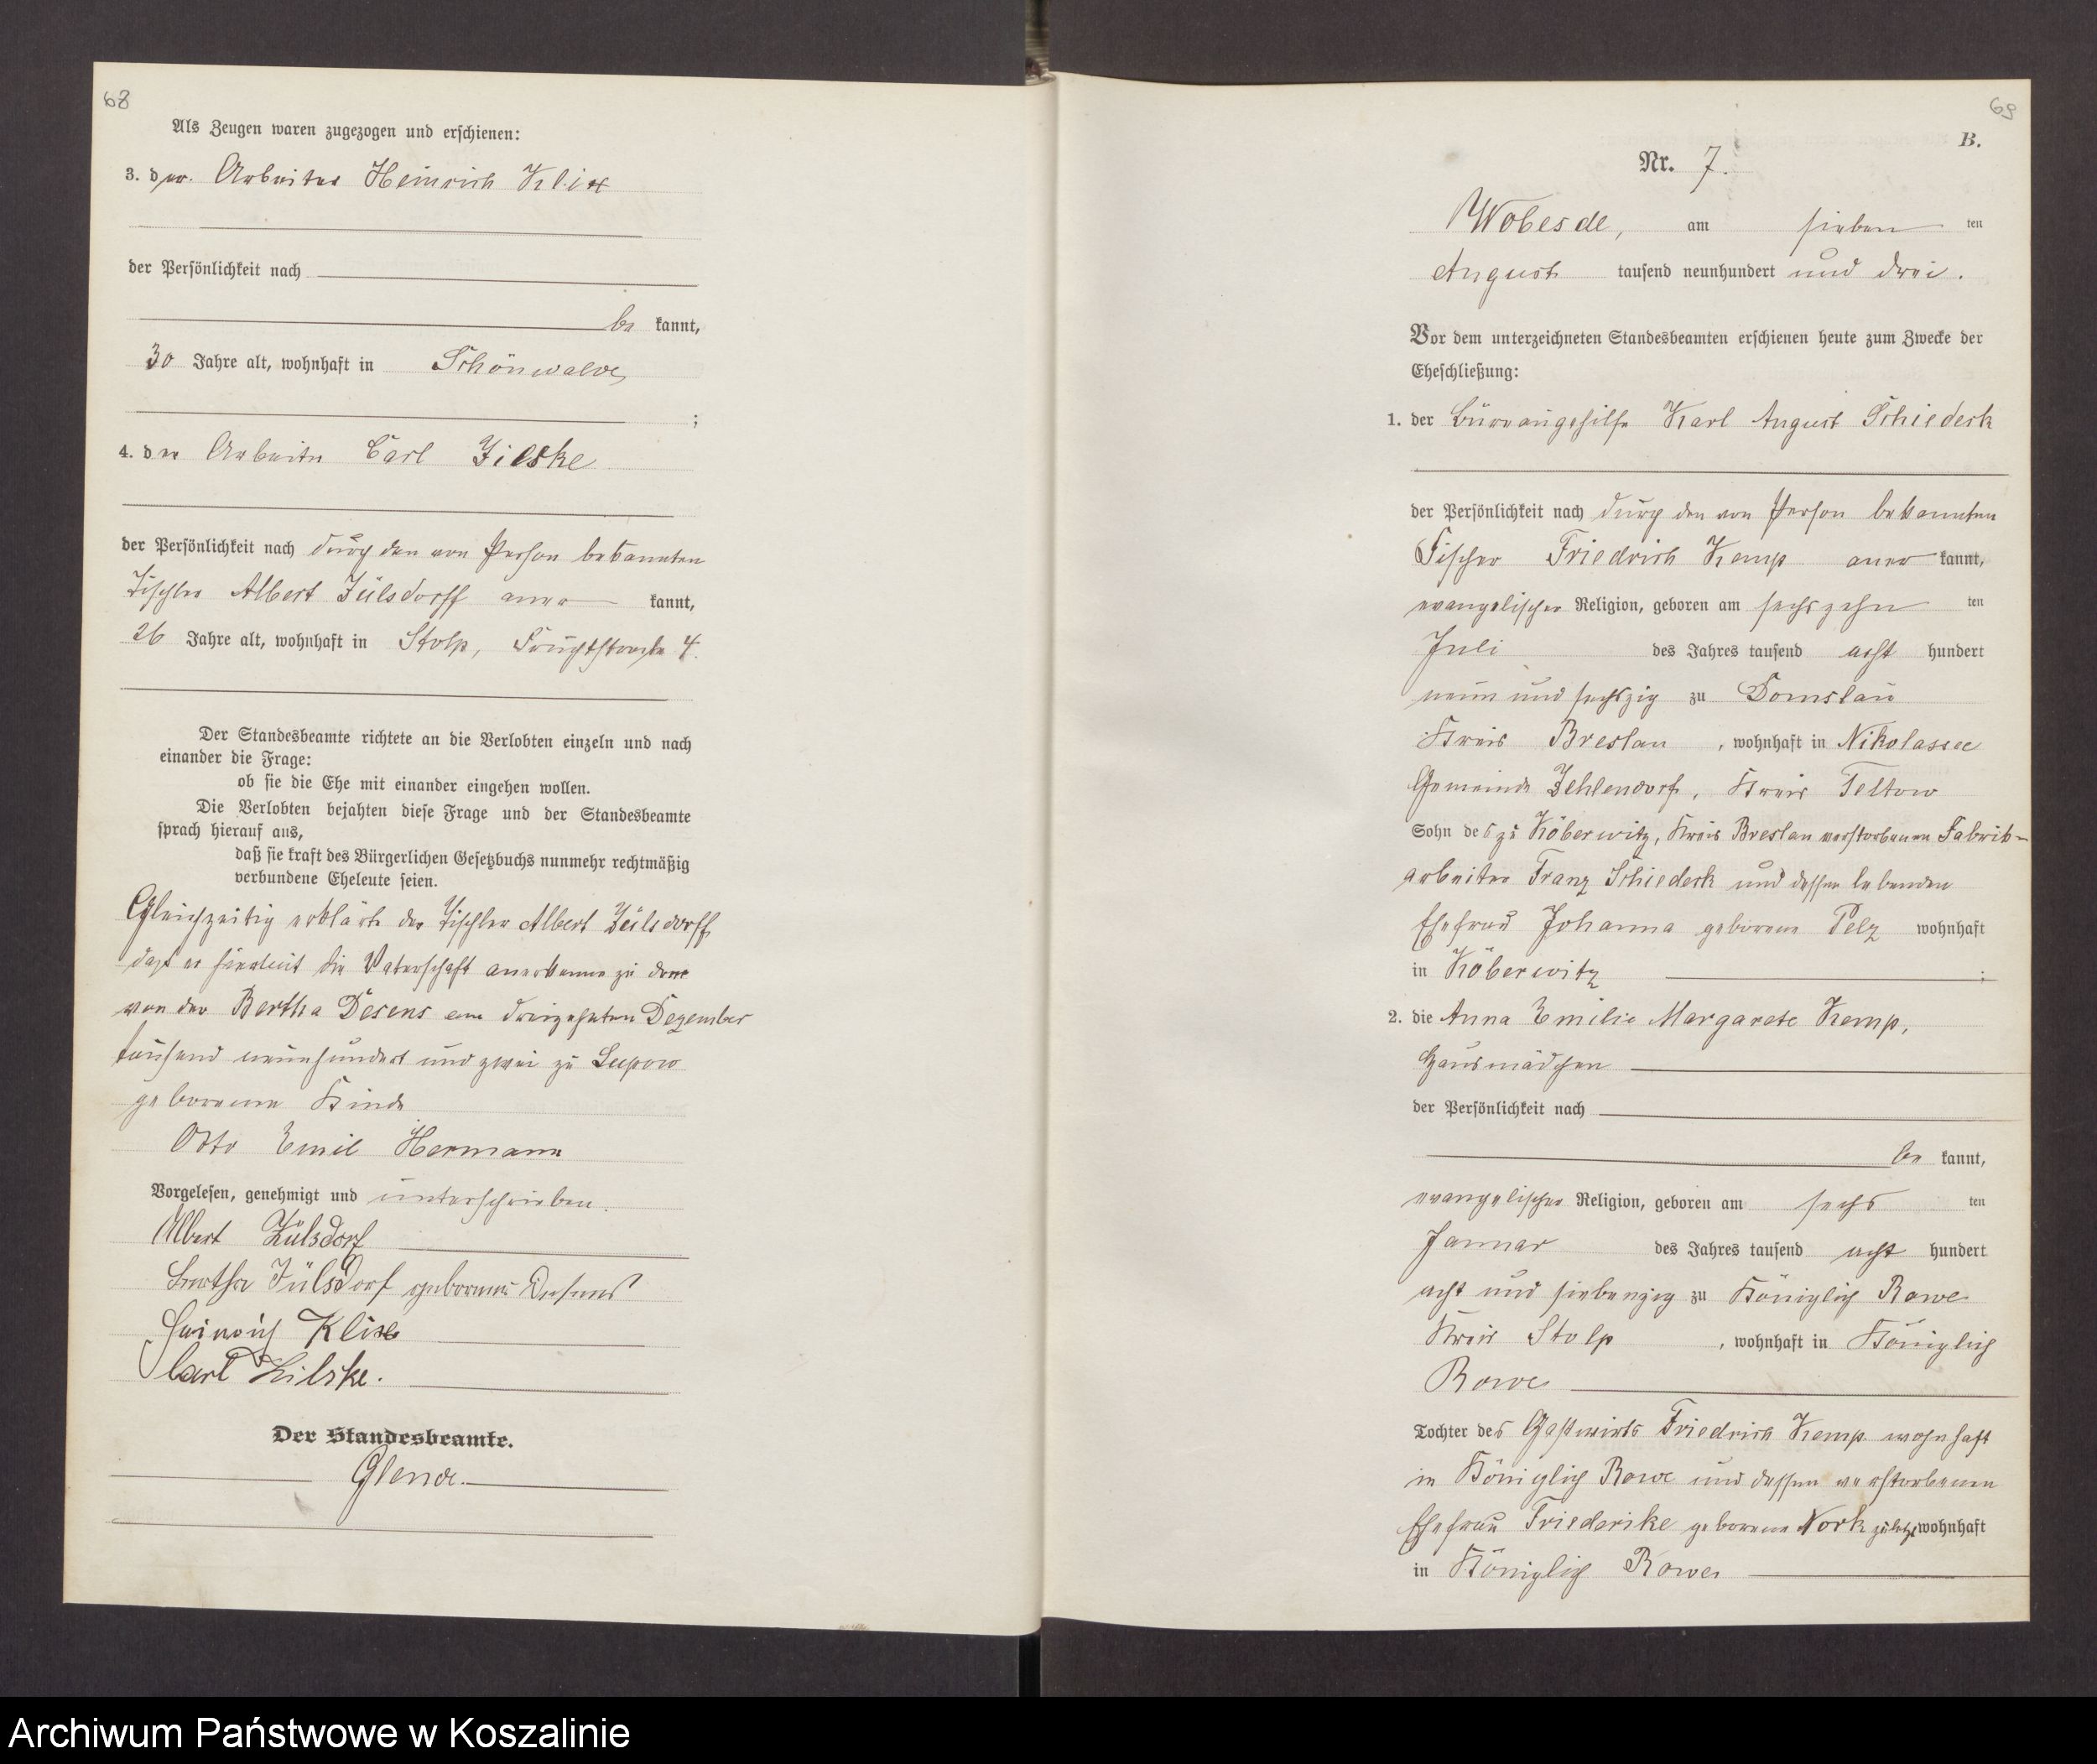 68
Als Zeugen waren zugezogen und erschienen:
3. der Arbeiter Heinrich Klix
der Persönlichkeit nach
be kannt,
30 Jahre alt, wohnhaft in Schönwalde
;
4. der Arbeiter Carl Zielske
der Persönlichkeit nach durch den von Person bekannten
Tischler Albert Zülsdorff aner kannt,
26 Jahre alt, wohnhaft in Stolp, 4.
Der Standesbeamte richtete an die Verlobten einzeln und nach
einander die Frage:
ob sie die Ehe mit einander eingehen wollen.
Die Verlobten bejahten diese Frage und der Standesbeamte
sprach hierauf aus,
daß sie kraft des Bürgerlichen Gesetzbuchs nunmehr rechtmäßig
verbundene Eheleute seien.
Gleichzeitig erklärte der Tischler Albert Zülsdorff
daß er hiermit die Vaterschaft anerkenne zu dem
von der Bertha Desens am dreizehnten Dezember
tausend neunhundert und zwei zu Lupow
geborenen Kinde
Otto Emil Hermann
Vorgelesen, genehmigt und unterschrieben.
Albert Zülsdorf
Bertha Zülsdorf geborene Desens
Heinrich Klix
Carl Zilske.
Der Standesbeamte.
Glende.
69
B.
Nr. 7.
Wobesde, am sieben ten
August tausend neunhundert und drei.
Vor dem unterzeichneten Standesbeamten erschienen heute zum Zwecke der
Eheschließung:
1. der Büreaugehilfe Karl August Schiedeck
der Persönlichkeit nach durch den von Person bekannten
Fischer Friedrich Kemp aner kannt,
evangelischer Religion, geboren am sechszehn ten
Juli des Jahres tausend acht hundert
neun und sechszig zu Domslau
Kreis Breslau, wohnhaft in Nikolassee
Gemeinde Zehlendorf, Kreis Teltow
Sohn des zu Köberwitz, Kreis Breslau verstorbenen Fabrik-
arbeiter Franz Schiedeck und dessen lebenden
Ehefrau Johanna geborene Pelz wohnhaft
in Köberwitz ;
2. die Anna Emilie Margarete Kemp,
Hausmädchen
der Persönlichkeit nach
be kannt,
evangelischer Religion, geboren am sechs ten
Januar des Jahres tausend acht hundert
acht und siebenzig zu Königlich Rowe
Kreis Stolp, wohnhaft in Königlich
Rowe
Tochter des Gastwirts Friedrich Kemp wohnhaft
in Königlich Rowe und dessen verstorbenen
Ehefrau Friederike geborene Nork zuletzt wohnhaft
in Königlich Rowe
Archiwum Państwowe w Koszalinie